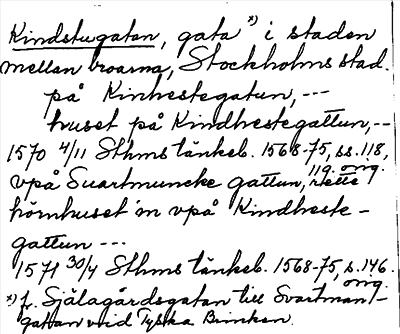 Kindstugatan, gata *) i staden
mellan broarna, Stockholms stad.
på Kinhestegatun, ---
huset på Kindhestegattun, --
1570 4/11 Sthms tänkeb. 1568-75, ss. 118,
119. orig.
vpå Suartmuncke gattun, rette
hörnhuset in vpå Kindheste-
gattun ---
1571 30/4 Sthms tänkeb. 1568-75, s. 146.
orig.
*) f. Själagårdsgatan till Svartman-
gatan vid Tyska Brinken.